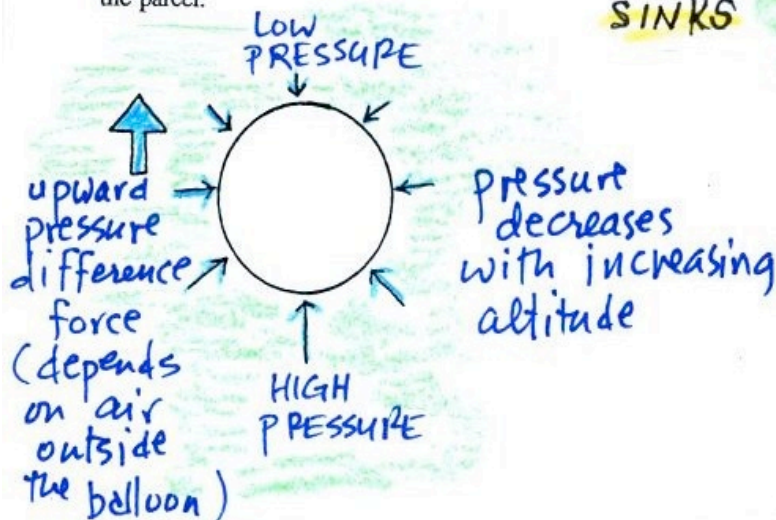 the parcel.
SINKS
LOW
PRESSURE
upward
pressure
difference
force
(depends
on air
outside
the balloon)
pressure
decreases
with increasing
altitude
HIGH
PRESSURE